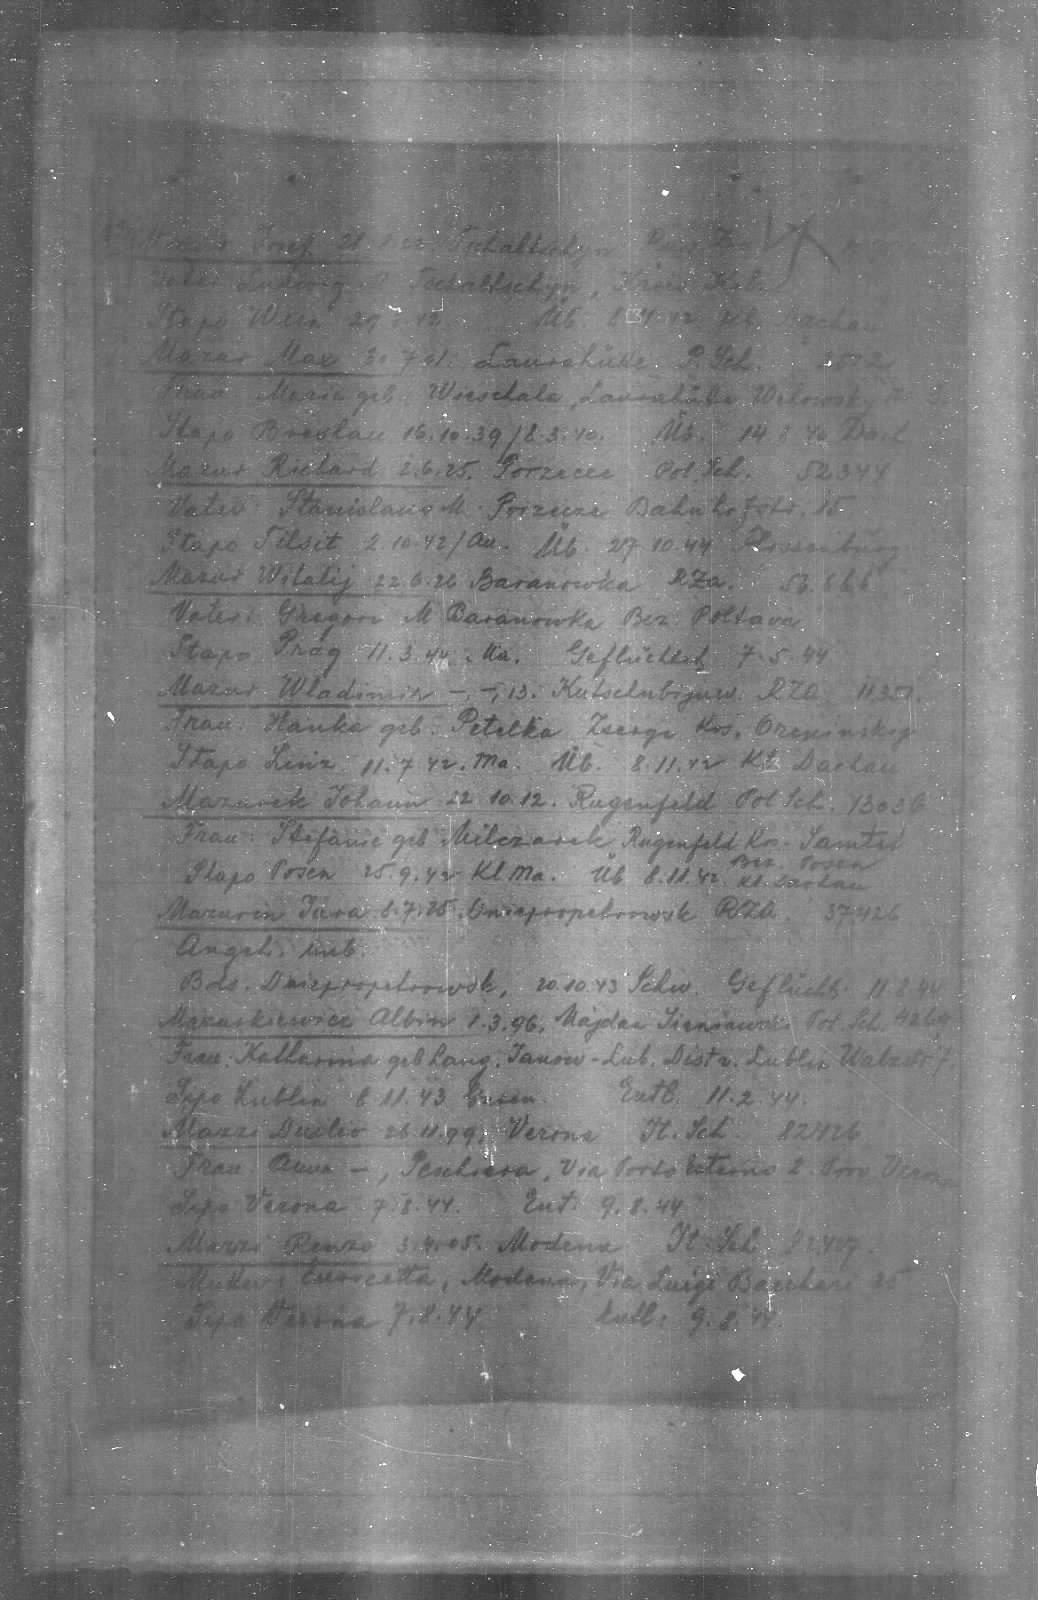 Mazur Josef 21. .22 Tschaltschyn
Vater Ludwig M Tschaltschyn, Kreis
Stapo Wien 29. .42. Üb. 8.11.42 Kl. Dachau
Mazur Max 30.7.01. Laurahütte P. Sch.
Frau: Marie geb. Wieschala, Laurahütte
Stapo Breslau 16.10.39/8.3.40. Üb. 14.8.40 Dach
Mazur Richard 2.6.25. Porzecee Pol. Sch. 52344
Vater: Stanislaus M. Porzecze Bahnhofstr. 15
Stapo Tilsit 2.10.42/Au. Üb. 27.10.44 Flossenbürg
Mazur Witalij 22.6.26 Baranowka RZA. 56.666
Vater: Gregori M Baranowka Bez. Poltava
Stapo Prag 11.3.44. Ma. Geflüchtet 7.5.44
Mazur Wladimir -.-.13. RZA 11351.
Frau: Hanka geb. Petelka Kos.
Stapo Linz 11.7.42. Ma. Üb. 8.11.42 Kl. Dachau
Mazurek Johann 22.10.12. Rugenfeld Pol Sch. 13036
Frau: Stefanie geb Milczarek Rugenfeld Krs. Samter
Bez. Posen
Stapo Posen 25.9.42 Kl Ma. Üb 8.11.42 Kl. Dachau
Mazurin Jura 8.7.25. Dniepropetrowsk RZA. 37426
Angeh. unb.
Bds. Dniepropetrowsk, 20.10.43 Schw. Geflücht. 11.8.44
Mazurkiewicz Albin 1.3.96. Majdan Sieniawski Pol. Sch.
Frau: Katharina geb Lang, Janow-Lub. Distr. Lublin 7.
Sipo Lublin 8.11.43 Gusen. Entl. 11.2.44.
Mazzi Duilio 26.11.99. Verona It. Sch. 82426
Frau: Anna -, Peschiera, Via Porto Esterno 2. Prov Verona
Sipo Verona 7.8.44. Ent. 9.8.44
Mazzi Renzo 3.4.05. Modena It. Sch. 82427.
Mutter: Enricetta, Modena, Via Luigi 25
Sipo Verona 7.8.44 Entl. 9.8.44.